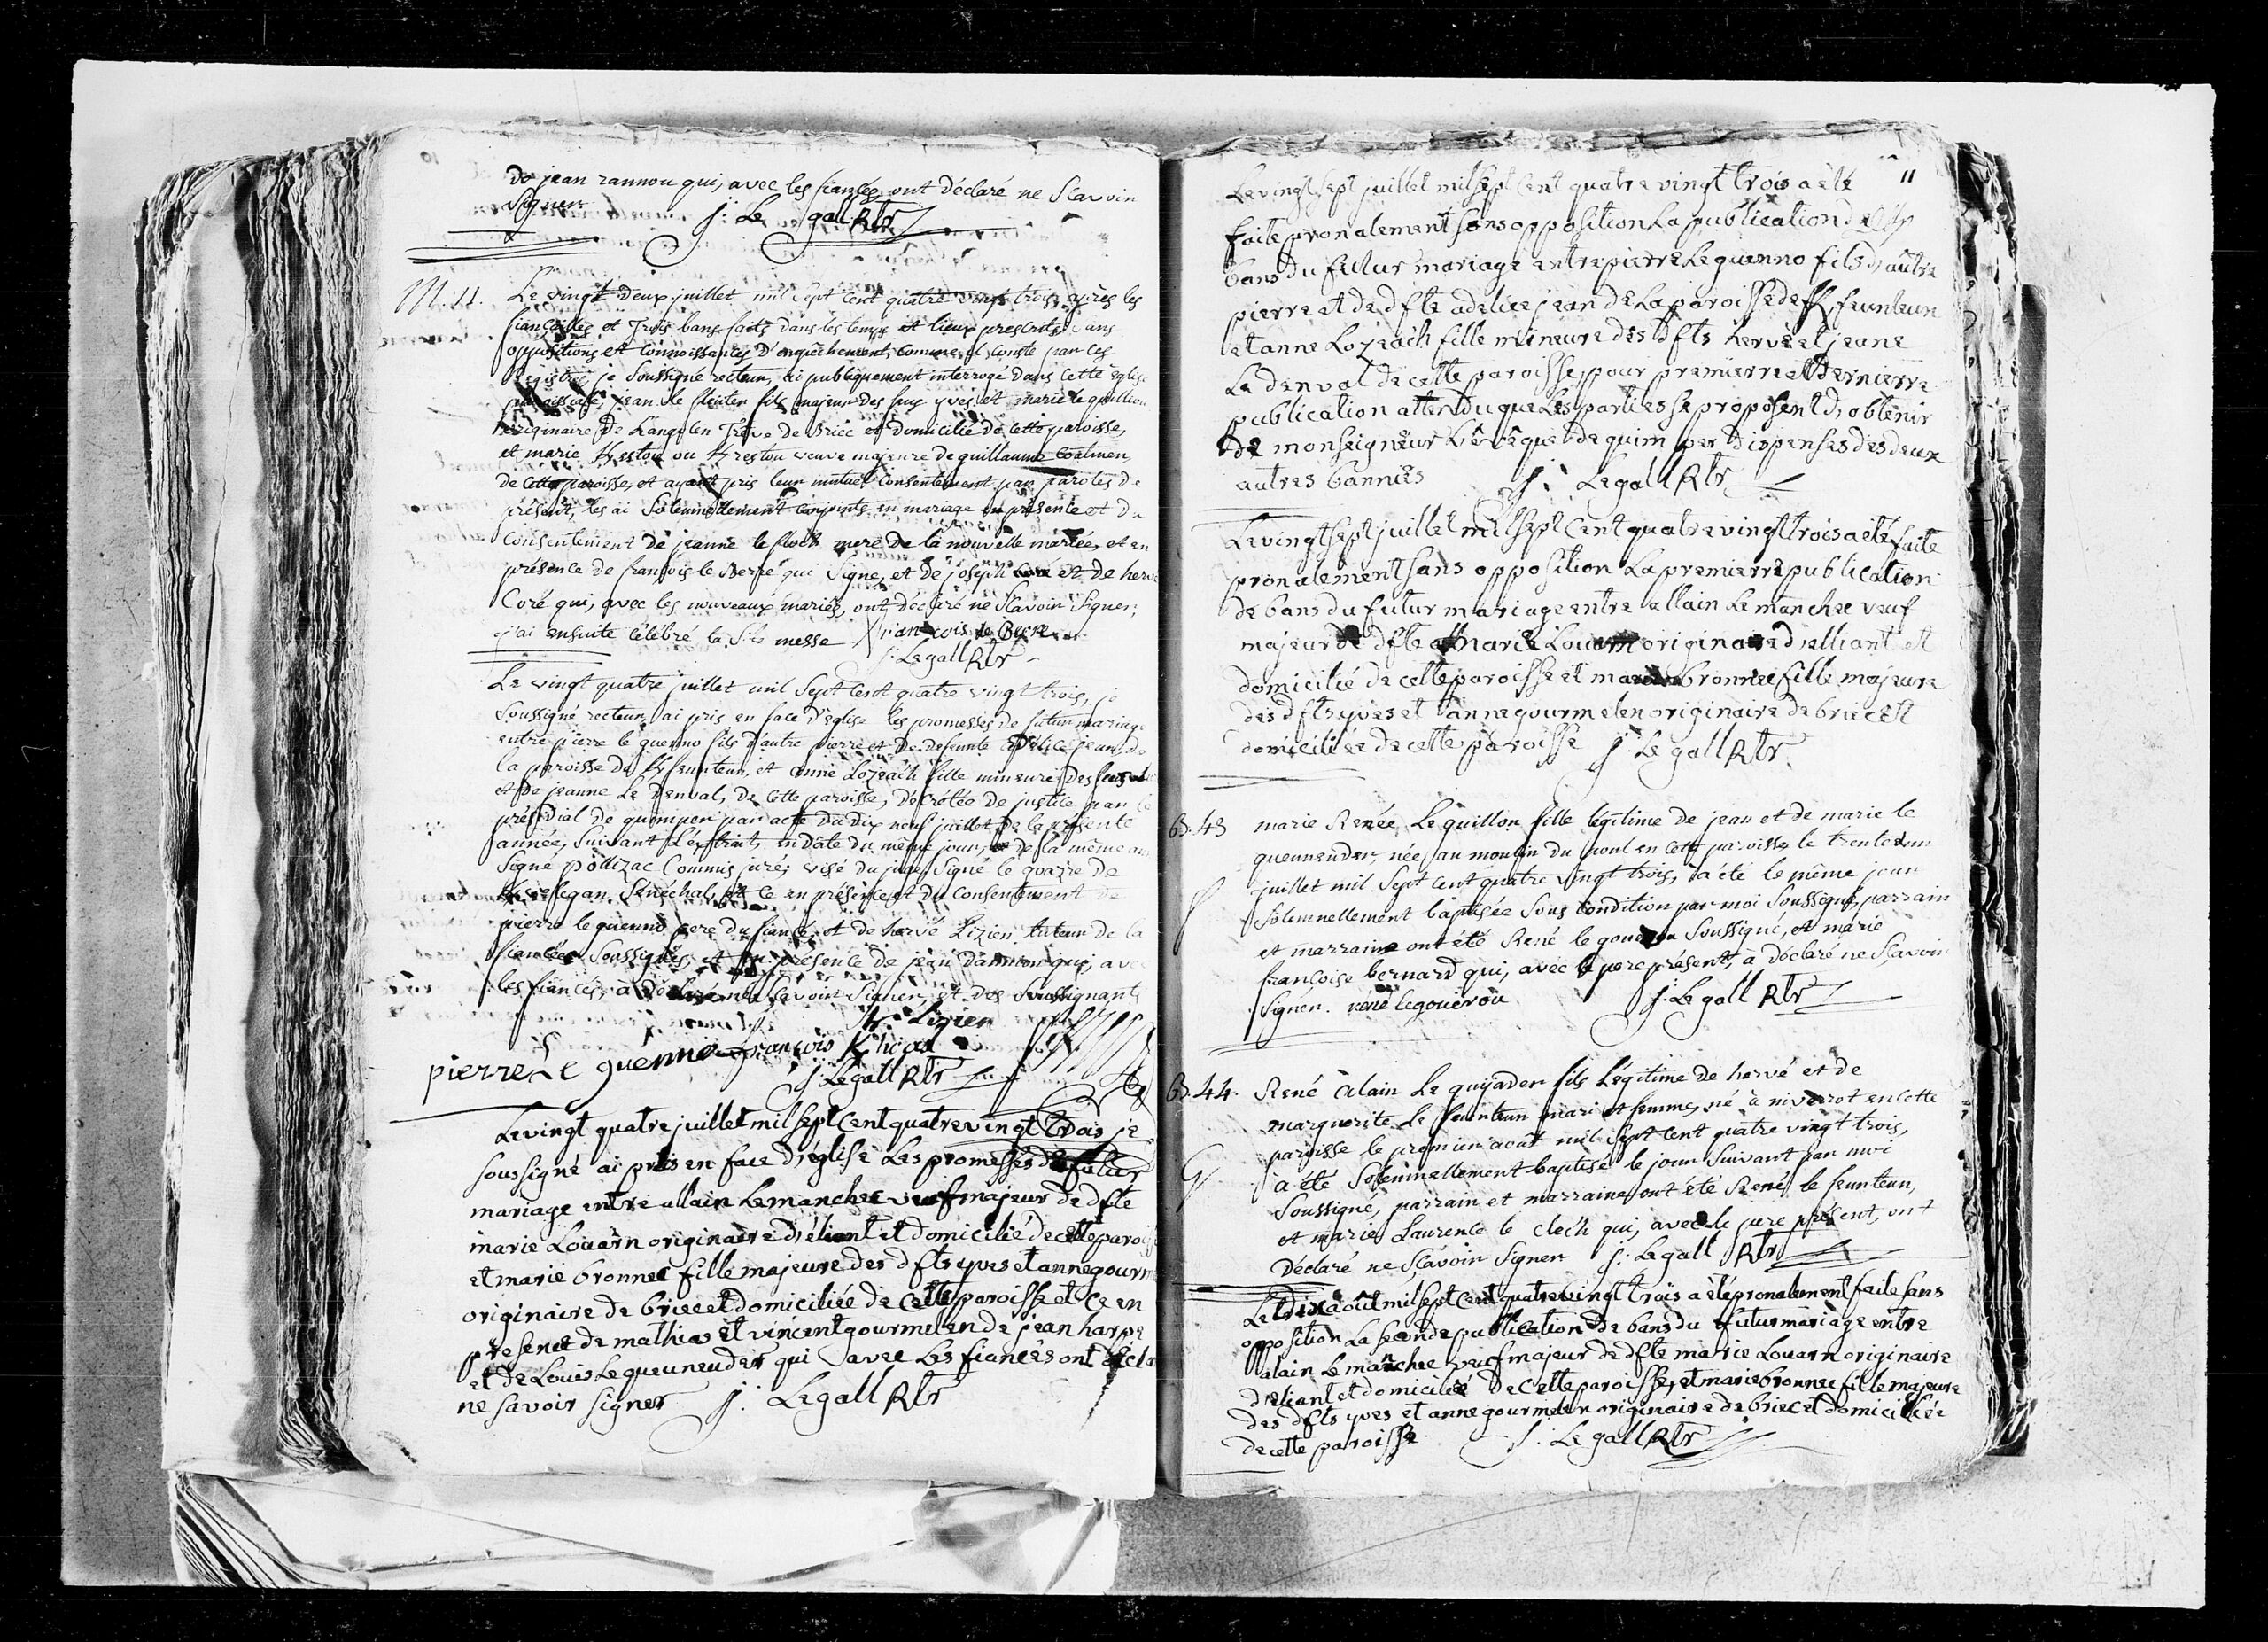 de jean rannou qui, avec les fiancés, ont déclaré ne Scavoir
Signer j: Le gall Rtr
M. 11. Le vingt deux juillet mil Sept Cent quatre vingt trois, après les
fiançailles et Trois bans faits dans les temps et lieux prescrits Sans
oppositions et Connoissances d'empêchement, Comme il Conste par ces
Registres, je Soussigné recteur, ai publiquement interrogé dans Cette eglise
paroissiale, jean le fleuter fils majeur des feus yves et marie le guillou
originaire De Langolen Treve de Briec et domicilié de Cette paroisse,
et marie veuve majeure de guillaume
de Cette paroisse, et ayant pris leur mutuel Consentement par paroles de
présent, les ai Solemnellement Conjoints en mariage en présence et du
Consentement de jeanne le floch mere de la nouvelle mariée, et en
présence de françois le Berre qui Signe, et de joseph Coré et de hervé
Coré qui, avec les nouveaux mariés, ont déclaré ne Scavoir Signer;
j'ai ensuite célébré la Ste messe françois le Berre
j: Legall Rtr
Le vingt quatre juillet mil Sept Cent quatre vingt trois, je
Soussigné recteur, ai pris en face d'église les promesses de futur mariage
entre pierre le guenno fils d'autre pierre et de defeunte adelice jean de
la paroisse de et anne Lozeach fille mineure des feus
et de jeanne Le Denval, de Cette paroisse, décrétée de justice par le
présidial de quimper par acte du dix neuf juillet de la présente
année, Suivant L'extrait, en date du même jour, et de la même
Signé Commis juré, visé du juge Signé le de
Sénéchal, et ce en présence et du Consentement de
pierre le guenno pere du fiancé, et de hervé Lizien tuteur de la
fiancée Soussignés, et en présence de jean qui, avec
les fiancés, a déclaré ne Scavoir Signer, et des Soussignants
Lizien
pierre Le guenno françois
j: Legall Rtr
Le vingt quatre juillet mil sept Cent quatre vingt trois je
soussigné ai pris en face d'église Les promesses de futur
mariage entre allain Lemanchec veuf majeur de dfte
marie Louarn originaire d'éliant et domicilié de cette paroisse
et marie bronnec fille majeure des dfts yves et anne gourm
originaire de briec et domiciliée de cette paroisse et ce en
presence de mathias et vincent gourmelen de jean harpe
et de Louis Le queuneuder qui avec Les fiancés ont déclar
ne savoir signer j: Legall Rtr
11
Le vingt sept juillet mil sept Cent quatre vingt trois a été
faite pronalement sans opposition La publication de
bans du futur mariage entre pierre Le guenno fils d'autre
pierre et de dfte adelice jean de La paroisse de feunteun
et anne Lozeach fille mineure des dfts hervé et jeane
Le denval de cette paroisse, pour premierre et dernierre
publication attendu que Les parties se proposent d, obtenir
de monseigneur L'évêque de quimper dispenses des deux
autres bannies j: Legall Rtr
Le vingt sept juillet mil sept Cent quatre vingt trois a été faite
pronalement sans opposition La premierre publication
de bans du futur mariage entre allain Le manchec veuf
majeur de dfte marie Louarn originaire d'elliant et
domicilié de cette paroisse et marie bronnec fille majeure
des dfts yves et anne gourmelen originaire de briec et
domiciliée de cette paroisse j: Le gall Rtr.
B. 43 marie Renée Le quillou fille legitime de jean et de marie le
queuneuder, née au moulin du poul en cette paroisse le trente un
juillet mil Sept Cent quatre vingt trois, a été le même jour
Solemnellement baptisée Sous Condition par moi Soussigné, parrain
et marraine ont été René le gouerou Soussigné, et marie
françoise bernard qui, avec le pere présent, a déclaré ne Scavoir
Signer. rené legouerou j: Le gall Rtr
B. 44. René alain Le quijader fils Légitime de hervé et de
marguerite Le feunteun mari et femme, né à niverrot en Cette
paroisse le premier août mil Sept Cent quatre vingt trois,
a été Solemnellement baptisé le jour Suivant par moi
Soussigné, parrain et marraine ont été René le feunteun,
et marie Laurence le clech qui, avec le pere présent, ont
déclaré ne Scavoir Signer j: Legall Rtr
Le dix août mil sept Cent quatre vingt trois a été pronalement faite sans
opposition La seconde publication de bans du futur mariage entre
alain Le manchec veuf majeur de dfte marie Louarn originaire
d'eliant et domicilié de Cette paroisse, et marie bronnec fille majeure
des dfts yves et anne gourmelen originaire de briec et domiciliée
de cette paroisse j: Le gall Rtr